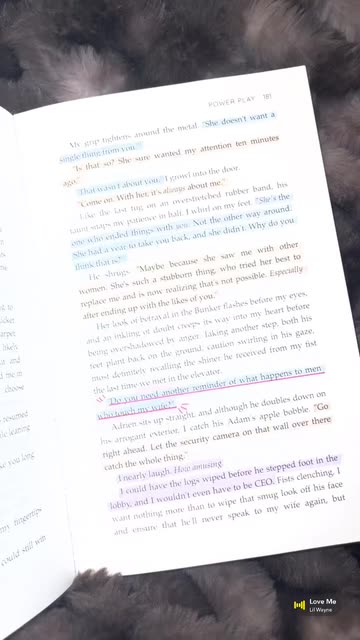 POWER PLAY 181
My grip tightens around the metal. "She doesn't want a
single thing from you."
"Is that so? She sure wanted my attention ten minutes
ago."
"That wasn't about you," I growl into the door.
"Come on. With her, it's always about me."
Like the last tug on an overstretched rubber band, his
taunt snaps my patience in half. I whirl on my feet. "She's the
one who ended things with you. Not the other way around.
She had a year to take you back, and she didn't. Why do you
think that is?"
He shrugs. "Maybe because she saw me with other
women. She's such a stubborn thing, who tried her best to
replace me and is now realizing that's not possible. Especially
after ending up with the likes of you."
Her look of betrayal in the Bunker flashes before my eyes,
and an inkling of doubt creeps its way into my heart before
being overshadowed by anger. Taking another step, both his
feet plant back on the ground, caution swirling in his gaze,
most definitely recalling the shiner he received from my fist
the last time we met in the elevator.
"Do you need another reminder of what happens to men
who touch my wife?"
Adrien sits up straight, and although he doubles down on
his arrogant exterior, I catch his Adam's apple bobble. "Go
right ahead. Let the security camera on that wall over there
catch the whole thing."
I nearly laugh. How amusing.
I could have the logs wiped before he stepped foot in the
lobby, and I wouldn't even have to be CEO. Fists clenching, I
want nothing more than to wipe that smug look off his face
and ensure that he'll never speak to my wife again, but
to
arper
likely
out and
me in
choose
resumed
leaving
you long
my fingertips
could still win
Love Me
Lil Wayne